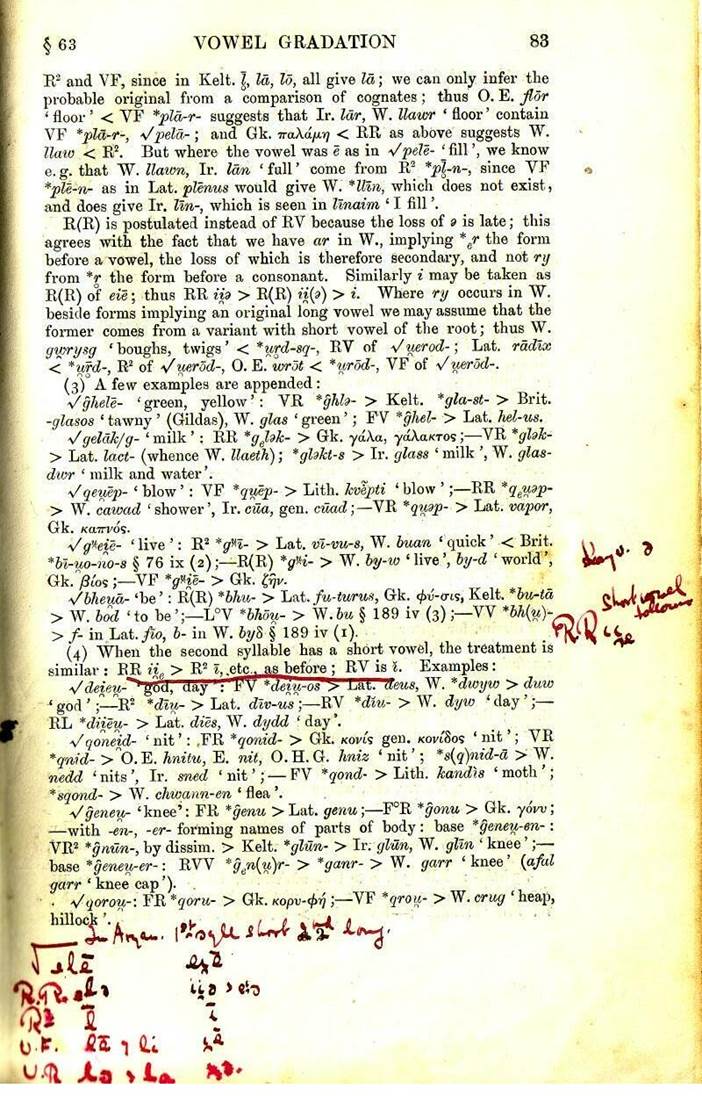 § 63 VOWEL GRADATION 83
R² and VF, since in Kelt. l̥̄, lā, lō, all give lā; we can only infer the
probable original from a comparison of cognates; thus O.E. flōr
‘floor’ < VF *plā-r- suggests that Ir. lār, W. llawr ‘floor’ contain
VF *plā-r-, √pelā-; and Gk. παλάμη < RR as above suggests W.
llaw < R². But where the vowel was ē as in √pelē- ‘fill’, we know
e.g. that W. llawn, Ir. lān ‘full’ come from R² *pl̥̄-n-, since VF
*plē-n- as in Lat. plēnus would give W. *llīn, which does not exist,
and does give Ir. līn-, which is seen in līnaim ‘I fill’.
R(R) is postulated instead of RV because the loss of ə is late; this
agrees with the fact that we have ar in W., implying *ₑr the form
before a vowel, the loss of which is therefore secondary, and not ry
from *r̥ the form before a consonant. Similarly i may be taken as
R(R) of eiē; thus RR ii̯ə > R(R) ii̯(ə) > i. Where ry occurs in W.
beside forms implying an original long vowel we may assume that the
former comes from a variant with short vowel of the root; thus W.
gwrysg ‘boughs, twigs’ < *u̯r̥d-sq-, RV of √u̯erod-; Lat. rādīx
< *u̯r̥̄d-, R² of √u̯erōd-, O.E. wrōt < *u̯rōd-, VF of √u̯erōd-.
(3) A few examples are appended:
√ĝhelē- ‘green, yellow’: VR *ĝhlə- > Kelt. *gla-st- > Brit.
-glasos ‘tawny’ (Gildas), W. glas ‘green’; FV *ĝhel- > Lat. hel-us.
√gelāk/g- ‘milk’: RR *gₑlək- > Gk. γάλα, γάλακτος;—VR *glək-
> Lat. lact- (whence W. llaeth); *gləkt-s > Ir. glass ‘milk’, W. glas-
dwr ‘milk and water’.
√qeu̯ēp- ‘blow’: VF *qu̯ēp- > Lith. kvẽpti ‘blow’;—RR *qₑu̯əp-
> W. cawad ‘shower’, Ir. cūa, gen. cūad;—VR *qu̯əp- > Lat. vapor,
Gk. καπνός.
√gᵘ̯eiē- ‘live’: R² *gᵘ̯ī- > Lat. vī-vu-s, W. buan ‘quick’ < Brit.
*bī-u̯o-no-s § 76 ix (2);—R(R) *gᵘ̯i- > W. by-w ‘live’, by-d ‘world’,
Gk. βίος;—VF *gᵘ̯i̯ē- > Gk. ζῆν.
√bheu̯ā- ‘be’: R(R) *bhu- > Lat. fu-turus, Gk. φύ-σις, Kelt. *bu-tā
> W. bod ‘to be’;—L°V *bhōu̯- > W. bu § 189 iv (3);—VV *bh(u̯)-
> f- in Lat. fīo, b- in W. byδ § 189 iv (1).
Short vowel
follows
R.R is
(4) When the second syllable has a short vowel, the treatment is
similar: RR ii̯ₑ > R² ī, etc., as before; RV is ĭ. Examples:
√deieu̯- ‘god, day’: FV *deiu̯-os > Lat. deus, W. *dwyw > duw
‘god’;—R² *dīu̯- > Lat. dīv-us;—RV *diu- > W. dyw ‘day’;—
RL *dii̯ēu̯- > Lat. diēs, W. dydd ‘day’.
√qoneid- ‘nit’: FR *qonid- > Gk. κονίς gen. κονίδος ‘nit’; VR
*qnid- > O.E. hnitu, E. nit, O.H.G. hniz ‘nit’; *s(q)nid-ā > W.
nedd ‘nits’, Ir. sned ‘nit’;—FV *qond- > Lith. kandìs ‘moth’;
*sqond- > W. chwann-en ‘flea’.
√ĝeneu̯- ‘knee’: FR *ĝenu > Lat. genu;—F°R *ĝonu > Gk. γόνυ;
—with -en-, -er- forming names of parts of body: base *ĝeneu̯-en-:
VR² *ĝnūn-, by dissim. > Kelt. *glūn- > Ir. glūn, W. glīn ‘knee’;—
base *ĝeneu̯-er-: RVV *ĝₑn(u̯)r- > *ganr- > W. garr ‘knee’ (afal
garr ‘knee cap’).
√qorou̯-: FR *qoru- > Gk. κορυ-φή;—VF *qrou̯- > W. crug ‘heap,
hillock’.
In Aryan. 1st syble short 2nd long.
√ elē ei̯ē
R.R. elə ii̯ə
R² l̄ ī
V.F. lē i̯ē
V.R lə > la i̯ə.